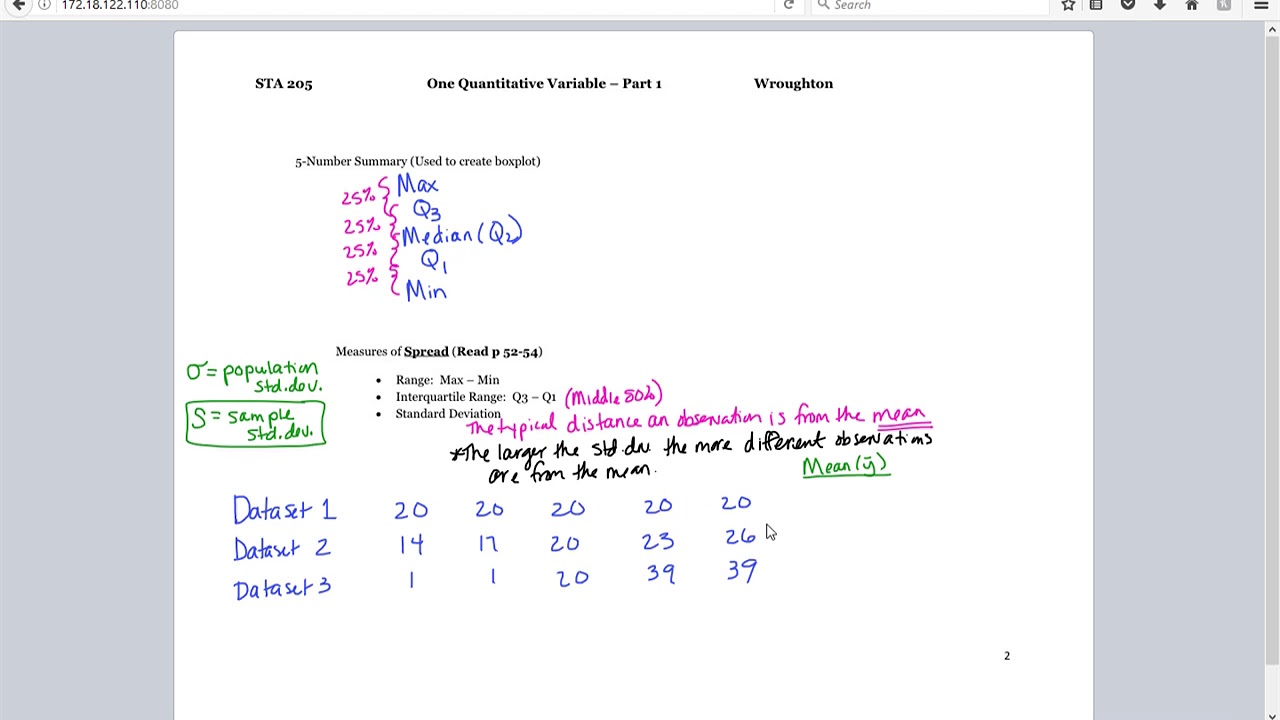 172.18.122.110:8080
Search
STA 205 One Quantitative Variable – Part 1 Wroughton
5-Number Summary (Used to create boxplot)
Max
25%
Q3
25%
Median (Q2)
25%
Q1
25%
Min
Measures of Spread (Read p 52-54)
σ = population
std. dev.
• Range: Max – Min
• Interquartile Range: Q3 – Q1 (Middle 50%)
• Standard Deviation
The typical distance an observation is from the mean
S = sample
std. dev.
*The larger the std dev the more different observations
are from the mean.
Mean (ȳ)
Dataset 1 20 20 20 20 20
Dataset 2 14 17 20 23 26
Dataset 3 1 1 20 39 39
2